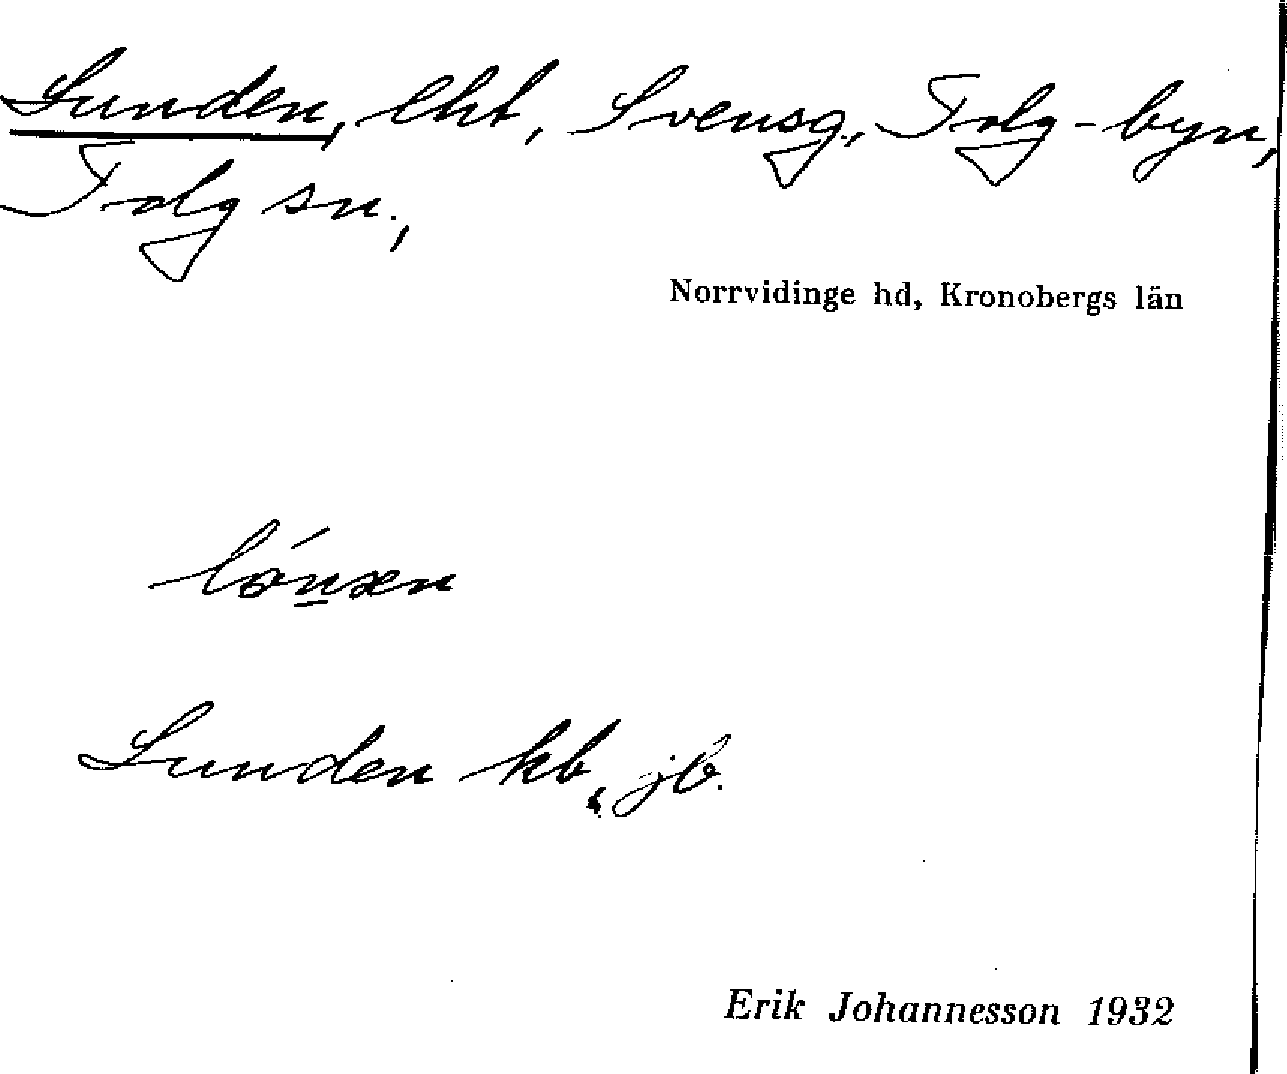 Lunden, lht, Svensg., Tolg-byn,
Tolg sn.,
Norrvidinge hd, Kronobergs län
Lunden kb, jb.
Erik Johannesson 1932